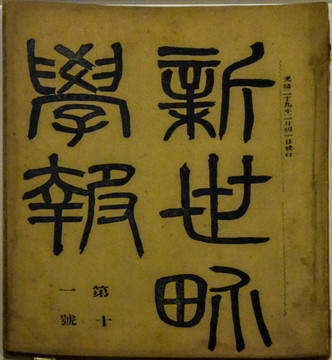 光緒二十九年二月初一日發行
新世畍
學報
第十
一號